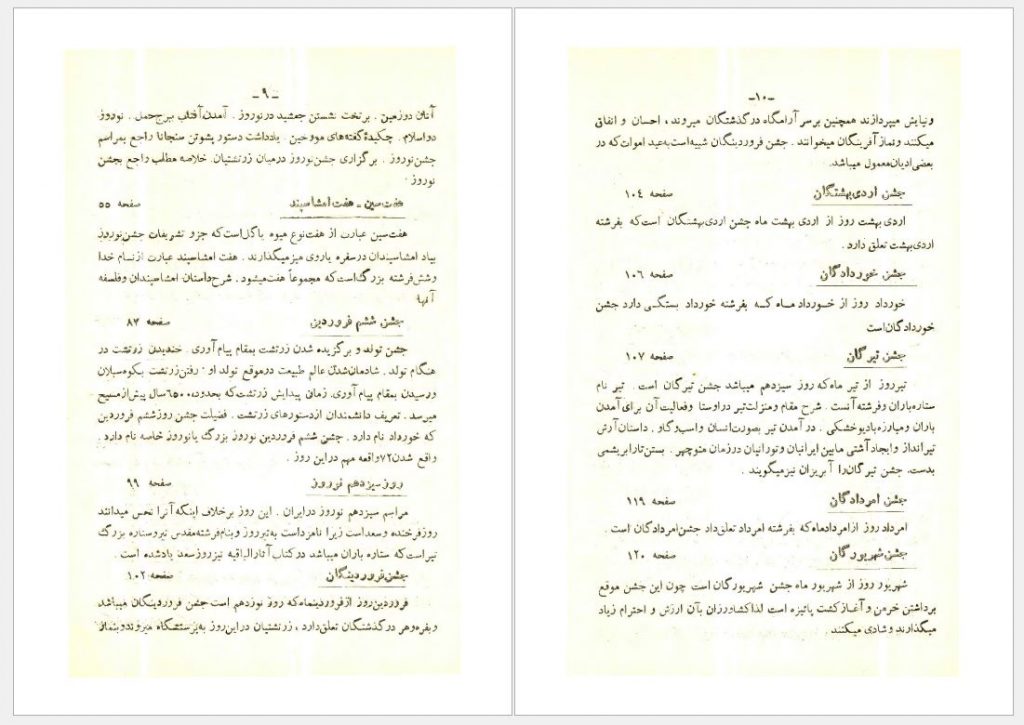 -۹-
آنان در زمین . برتخت نشستن جمشید در نوروز . آمدن آفتاب ببرج حمل . نوروز
در اسلام . چکیدهٔ گفته‌های مورخین . یادداشت دستور پشوتن سنجانا راجع بمراسم
جشن نوروز . برگزاری جشن نوروز در میان زرتشتیان . خلاصه مطلب راجع بجشن
نوروز .
هفت سین ـ هفت امشاسپند صفحه ۵۵
هفت سین عبارت از هفت نوع میوه یا گل است که جزو تشریفات جشن نوروز
بیاد امشاسپندان در سفره یا روی میز میگذارند . هفت امشاسپند عبارت از نام خدا
وشش فرشته بزرگ است که مجموعاً هفت میشود . شرح داستان امشاسپندان و فلسفه
آنها
جشن ششم فروردین صفحه ۸۷
جشن تولد و برگزیده شدن زرتشت بمقام پیام آوری . خندیدن زرتشت در
هنگام تولد . شادمان شدن عالم طبیعت در موقع تولد او . رفتن زرتشت بکوه سبلان
ورسیدن بمقام پیام آوری. زمانی پیدایش زرتشت که بحدود ۶۵۰۰ سال پیش از مسیح
میرسد . تعریف دانشمندان از دستورهای زرتشت . فضیلت جشن روز ششم فروردین
که خورداد نام دارد . جشن ششم فروردین نوروز بزرگ یا نوروز خاصه نام دارد .
واقع شدن ۷۲ واقعه مهم در این روز .
روز سیزدهم نوروز صفحه ۹۹
مراسم سیزدهم نوروز در ایران . این روز برخلاف اینکه آنرا نحس میدانند
روز فرخنده و سعد است زیرا نامزد است به تیر روز و بنام فرشته مقدس تیر و ستاره بزرگ
تیر است که ستاره باران میباشد در کتاب آثار الباقیه نیز روز سعد یاد شده است .
جشن فروردینگان صفحه ۱۰۲
فروردین روز از فروردینماه که روز نوزدهم است جشن فروردینگان میباشد
و بفره وهر در گذشتگان تعلق دارد ، زرتشتیان در این روز به پرستشگاه میروند و بنماز
-۱۰-
ونیایش میپردازند همچنین برسر آرامگاه درگذشتگان میروند ، احسان و انفاق
میکنند و نماز آفرینگان میخوانند . جشن فروردینگان شبیه است به عید اموات که در
بعضی ادیان معمول میباشد.
جشن اردی بهشتگان صفحه ۱۰۴
اردی بهشت روز از اردی بهشت ماه جشن اردی بهشتگان است که بفرشته
اردی بهشت تعلق دارد .
جشن خوردادگان صفحه ۱۰۶
خورداد روز از خورداد ماه که بفرشته خورداد بستگی دارد جشن
خوردادگان است
جشن تیرگان صفحه ۱۰۷
تیر روز از تیر ماه که روز سیزدهم میباشد جشن تیرگان است . تیر نام
ستاره باران و فرشته آنست . شرح مقام و منزلت تیر در اوستا و فعالیت آن برای آمدن
باران و مبارزه با دیو خشکی . در آمدن تیر بصورت انسان و اسب و گاو . داستان آرش
تیرانداز و ایجاد آشتی مابین ایرانیان و تورانیان در زمان منوچهر . بستن تار ابریشمی
بدست، جشن تیرگان را آبریزان نیز میگویند .
جشن امردادگان صفحه ۱۱۹
امرداد روز از امرداد ماه که بفرشته امرداد تعلق داد جشن امردادگان است .
جشن شهریورگان صفحه ۱۲۰
شهریور روز از شهریور ماه جشن شهریورگان است چون این جشن موقع
برداشتن خرمن و آغاز کشت پائیزه است لذا کشاورزان بآن ارزش و احترام زیاد
میگذارند و شادی میکنند .